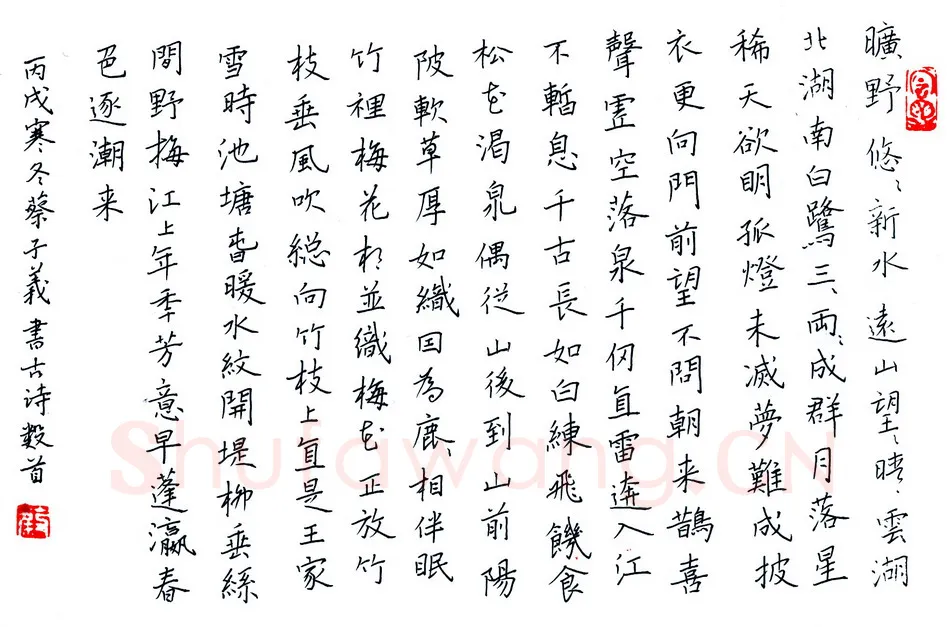 曠野悠〻新水遠山望〻晴〻雲湖
北湖南白鷺三〻兩〻成群月落星
稀天欲明孤燈未滅夢難成披
衣更向門前望不問朝来鵲喜
聲虛空落泉千仞直雷迸入江
不暫息千古長如白練飛饑食
松花渴飲泉偶従山後到山前陽
陂軟草厚如織因為鹿〻相伴眠
竹裡梅花相並織梅花正放竹
枝垂風吹総向竹枝上直是王家
雪時池塘春暖水紋開堤柳垂絲
間野梅江上年年芳意早蓬瀛春
色逐潮来
丙戌寒冬蔡子義書古诗数首
Shufawang.CN